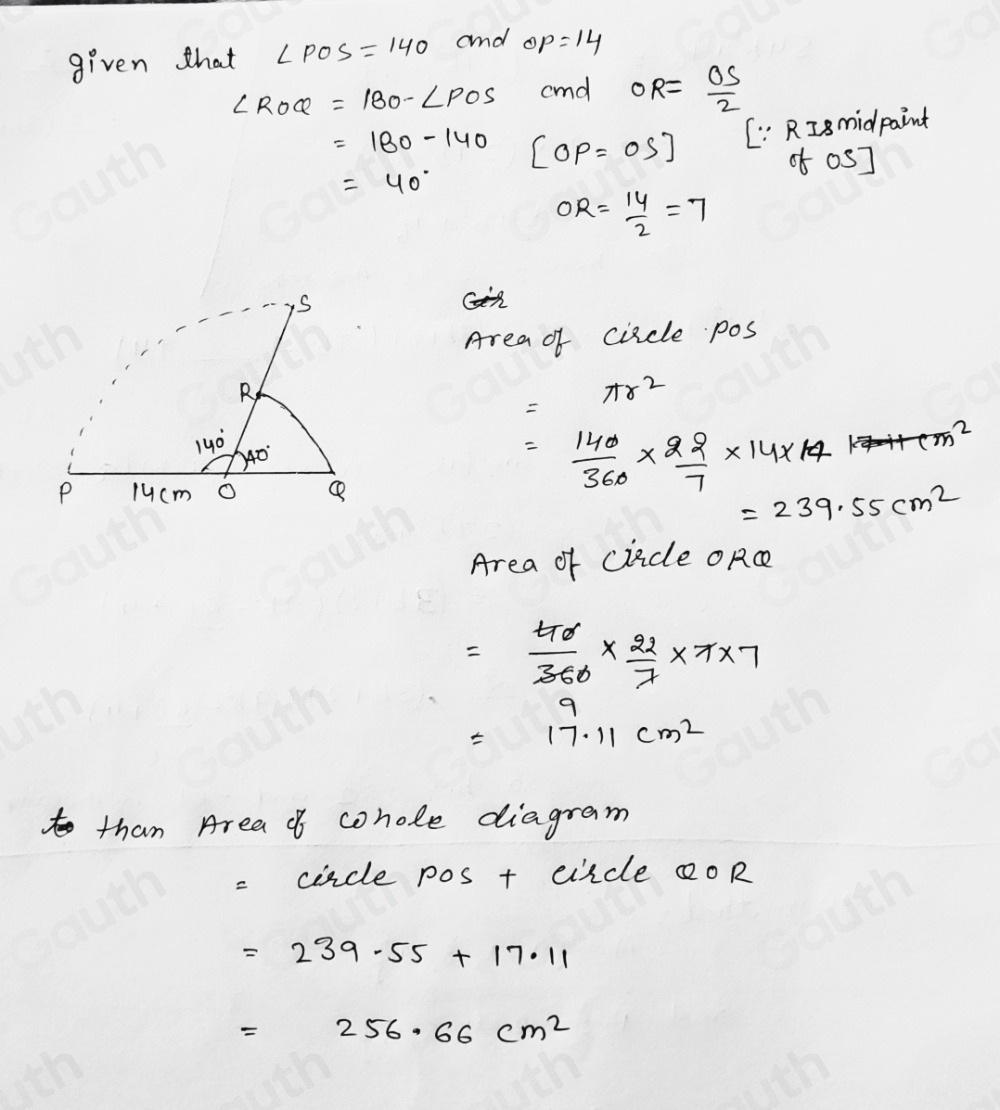 given that ∠POS = 140 and OP = 14
∠ROQ = 180 - ∠POS and OR = OS/2
= 180 - 140 [OP = OS] [∵ R IS midpaint of OS]
= 40°
OR = 14/2 = 7
S
R
140° 40°
P 14cm O Q
Cir
Area of circle pos
= πr²
= 140/360 × 22/7 × 14 × 14 17.11 cm²
= 239.55 cm²
Area of circle ORQ
= 40/360 × 22/7 × 7 × 7
9
= 17.11 cm²
to than Area of whole diagram
= circle pos + circle QOR
= 239.55 + 17.11
= 256.66 cm²
Gauth